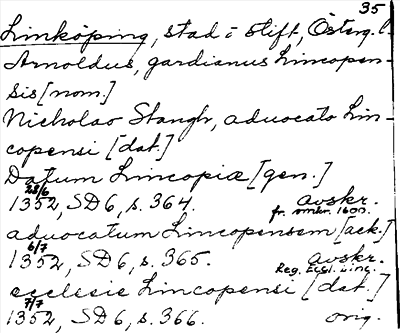 35
Linköping, stad i stift, Österg. l.
Arnoldus, gardianus Lincopen-
sis [nom.]
Nicholao Stangh, aduocato Lin-
copensi [dat.]
Datum Lincopiæ [gen.]
28/6
1352, SD 6, s. 364. avskr.
fr. omkr. 1600.
aduocatum Lincopensem [ack.]
6/7
1352, SD 6, s. 365. avskr.
Reg. Eccl. Linc.
ecclesie Lincopensi [dat.]
7/7
1352, SD 6, s. 366. orig.